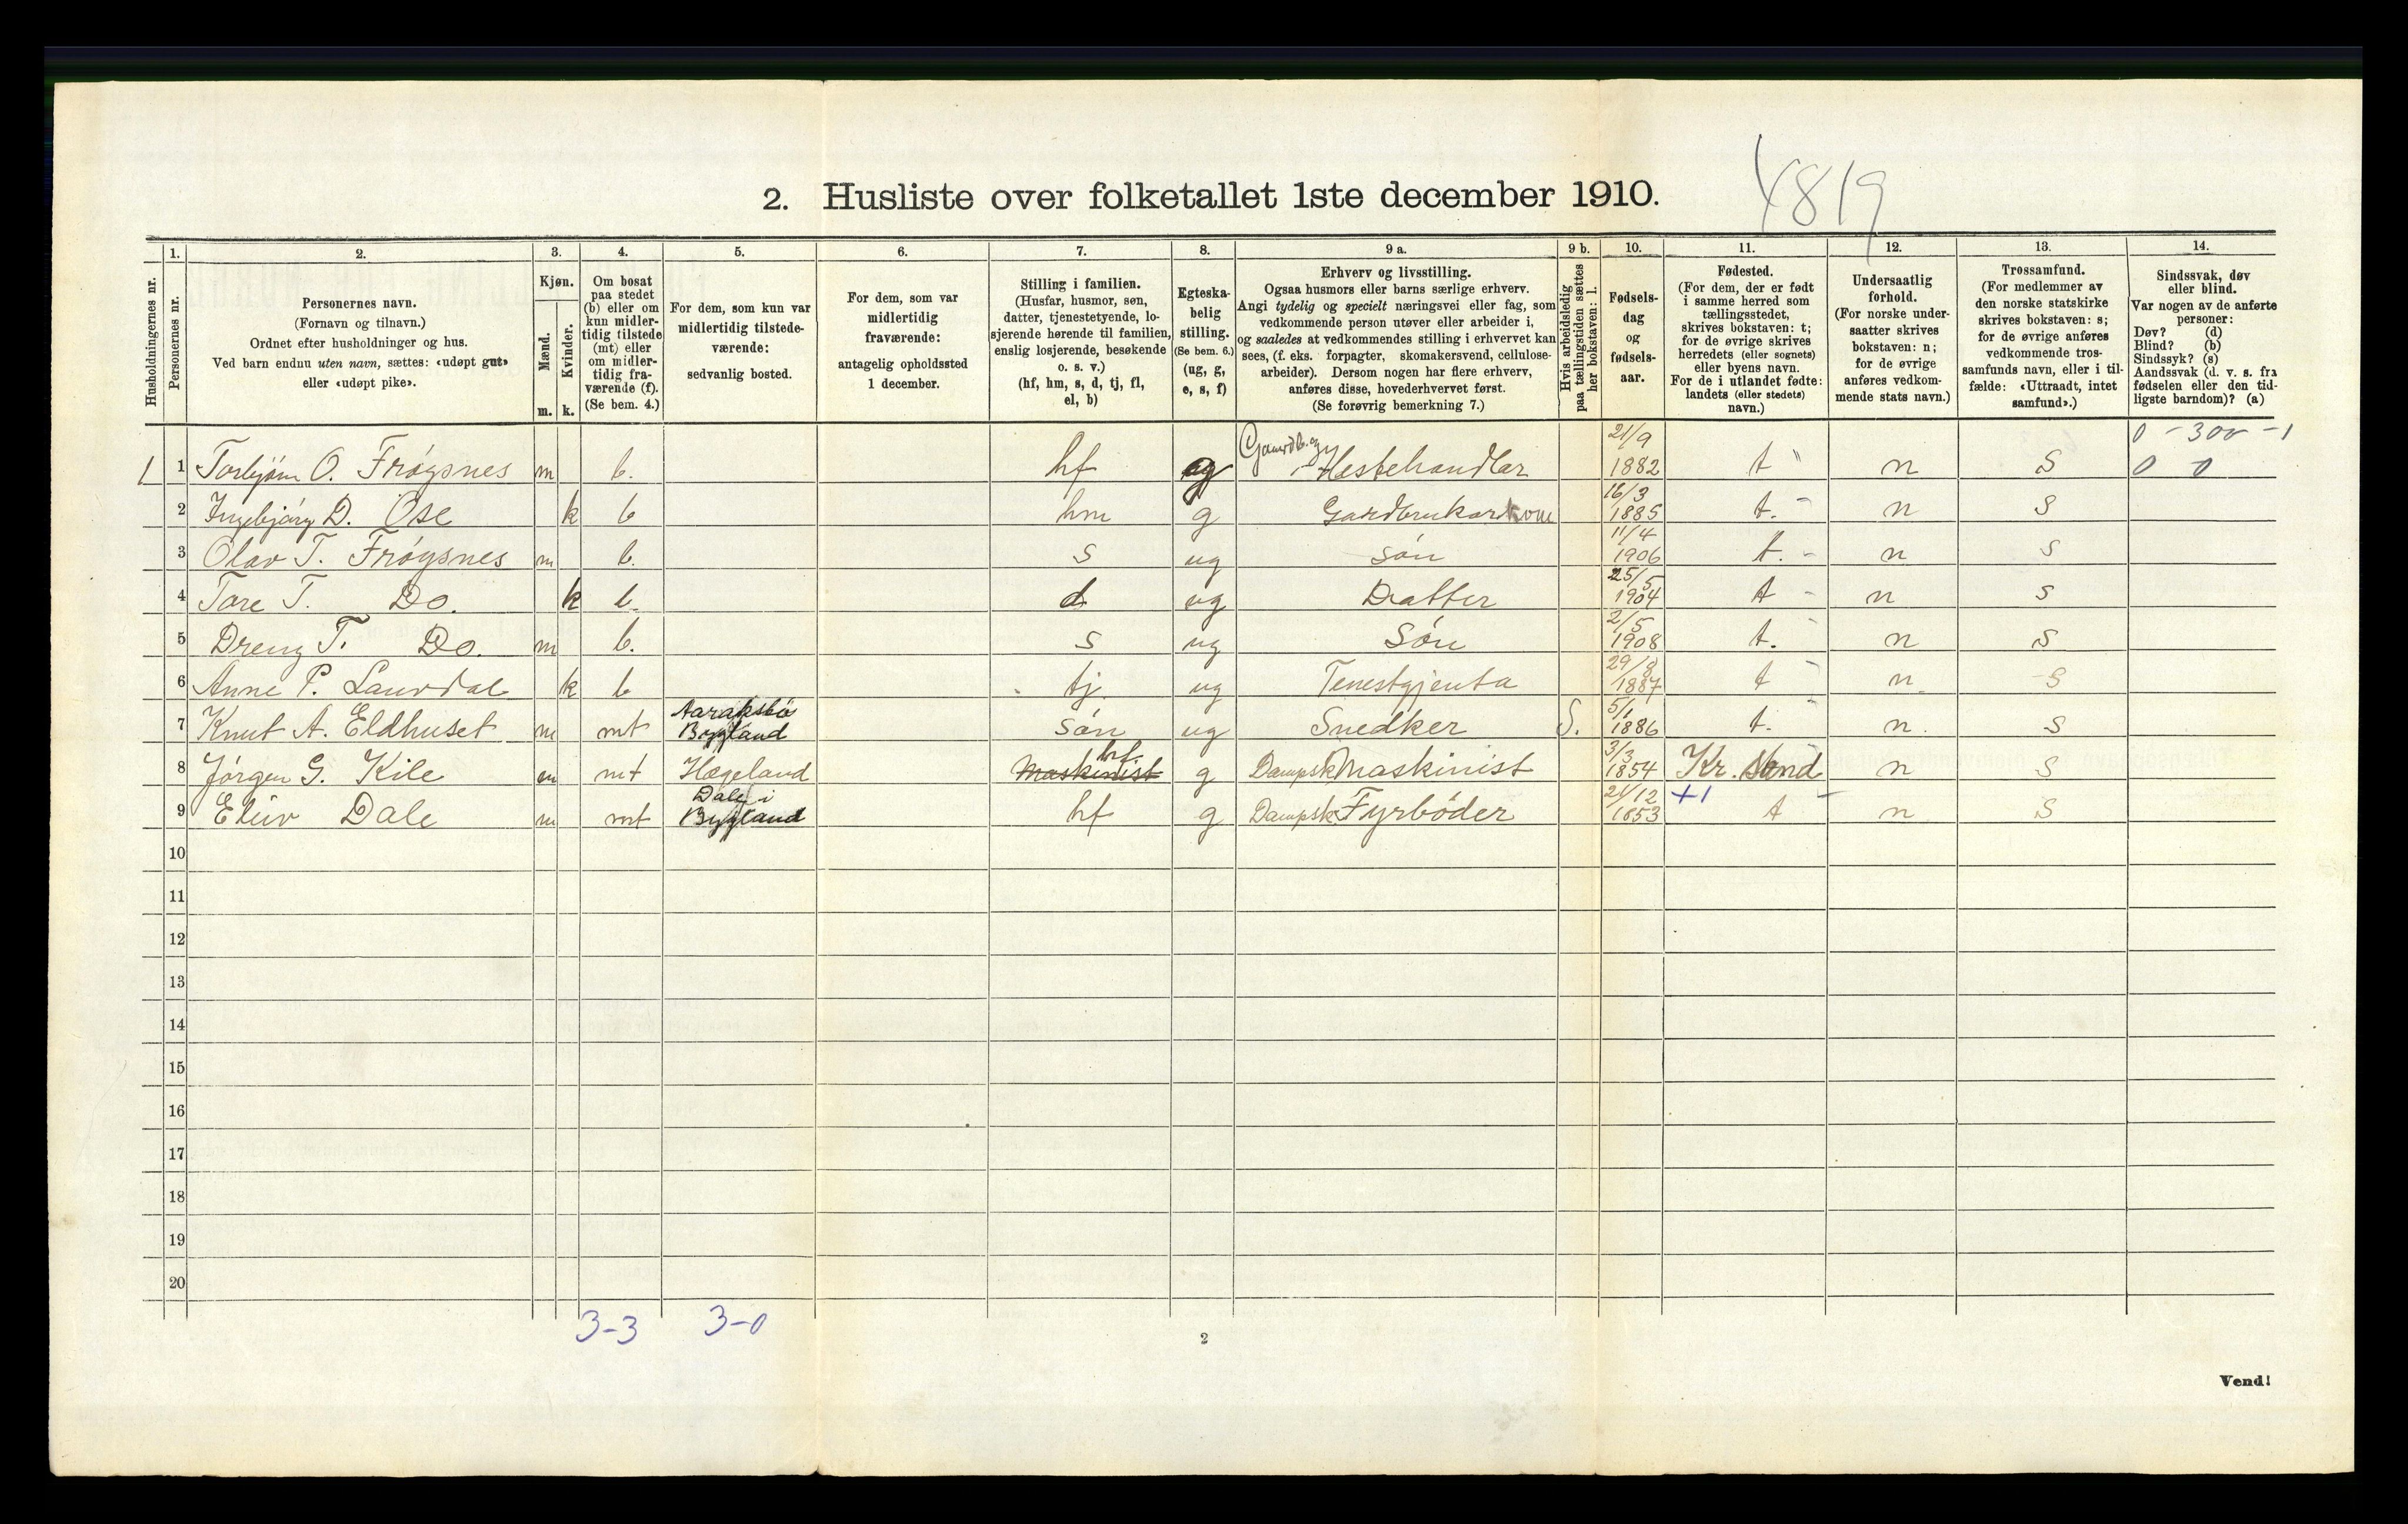 2. Husliste over folketallet 1ste december 1910.
4819
Husholdningernes nr.
1. Personernes nr.
2. Personernes navn.
(Fornavn og tilnavn.)
Ordnet efter husholdninger og hus.
Ved barn endnu uten navn, sættes: «udøpt gut»
eller «udøpt pike».
3. Kjøn.
Mænd. m.
Kvinder. k.
4. Om bosat
paa stedet
(b) eller om
kun midler-
tidig tilstede
(mt) eller
om midler-
tidig fra-
værende (f).
(Se bem. 4.)
5. For dem, som kun var
midlertidig tilstede-
værende:
sedvanlig bosted.
6. For dem, som var
midlertidig
fraværende:
antagelig opholdssted
1 december.
7. Stilling i familien.
(Husfar, husmor, søn,
datter, tjenestetyende, lo-
sjerende hørende til familien,
enslig losjerende, besøkende
o. s. v.)
(hf, hm, s, d, tj, fl,
el, b)
8. Egteska-
belig
stilling.
(Se bem. 6.)
(ug, g,
e, s, f)
9 a. Erhverv og livsstilling.
Ogsaa husmors eller barns særlige erhverv.
Angi tydelig og specielt næringsvei eller fag, som
vedkommende person utøver eller arbeider i,
og saaledes at vedkommendes stilling i erhvervet kan
sees, (f. eks. forpagter, skomakersvend, cellulose-
arbeider). Dersom nogen har flere erhverv,
anføres disse, hovederhvervet først.
(Se forøvrig bemerkning 7.)
9 b. Hvis arbeidsledig
paa tællingstiden sættes
her bokstaven: l.
10. Fødsels-
dag
og
fødsels-
aar.
11. Fødested.
(For dem, der er født
i samme herred som
tællingsstedet,
skrives bokstaven: t;
for de øvrige skrives
herredets (eller sognets)
eller byens navn.
For de i utlandet fødte:
landets (eller stedets)
navn.)
12. Undersaatlig
forhold.
(For norske under-
saatter skrives
bokstaven: n;
for de øvrige
anføres vedkom-
mende stats navn.)
13. Trossamfund.
(For medlemmer av
den norske statskirke
skrives bokstaven: s;
for de øvrige anføres
vedkommende tros-
samfunds navn, eller i til-
fælde: «Uttraadt, intet
samfund».)
14. Sindssvak, døv
eller blind.
Var nogen av de anførte
personer:
Døv? (d)
Blind? (b)
Sindssyk? (s)
Aandssvak (d. v. s. fra
fødselen eller den tid-
ligste barndom)? (a)
1 1 Torbjørn O. Frøysnes m b. hf Gaardb. og Hestehandlar 21/9 1882 t n S 0 0
2 Ingebjørg D. Ose k b hm g Gardbrukarkone 16/3 1885 t. n S
3 Olav T. Frøysnes m b. s ug søn 11/4 1906 t. n s
4 Tore T. Do. k b. d ug Datter 25/5 1904 t n s
5 Dreng T. Do. m b. s ug Søn 2/5 1908 t. n s
6 Anne P. Lauvdal k b tj. ug Tenestgjenta 29/8 1887 t n. S
7 Knut A. Eldhuset m mt Aaraksbø Bygland søn ug Snedker S. 5/1 1886 t. n. s
8 Jørgen G. Kile m mt Hægeland Maskinist hf g Dampsk Maskinist 3/3 1854 Kr. sand n S
9 Eliv Dale m mt Dale i Bygland hf g Dampsk. Fyrbøder 21/12 1853 +1 t n S
10
11
12
13
14
15
16
17
18
19
20
3-3 3-0
2
Vend!